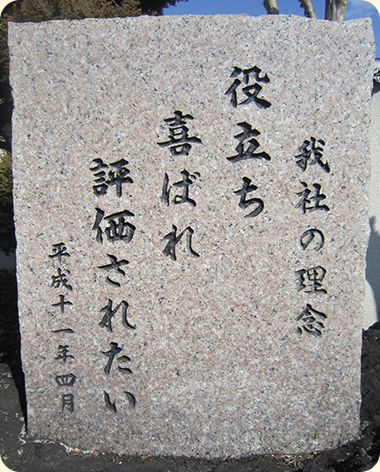 我社の理念
役立ち
喜ばれ
評価されたい
平成十一年四月